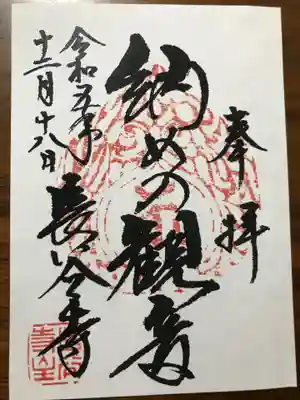 奉拝
納めの観音
長谷寺
令和五年
十二月十八日